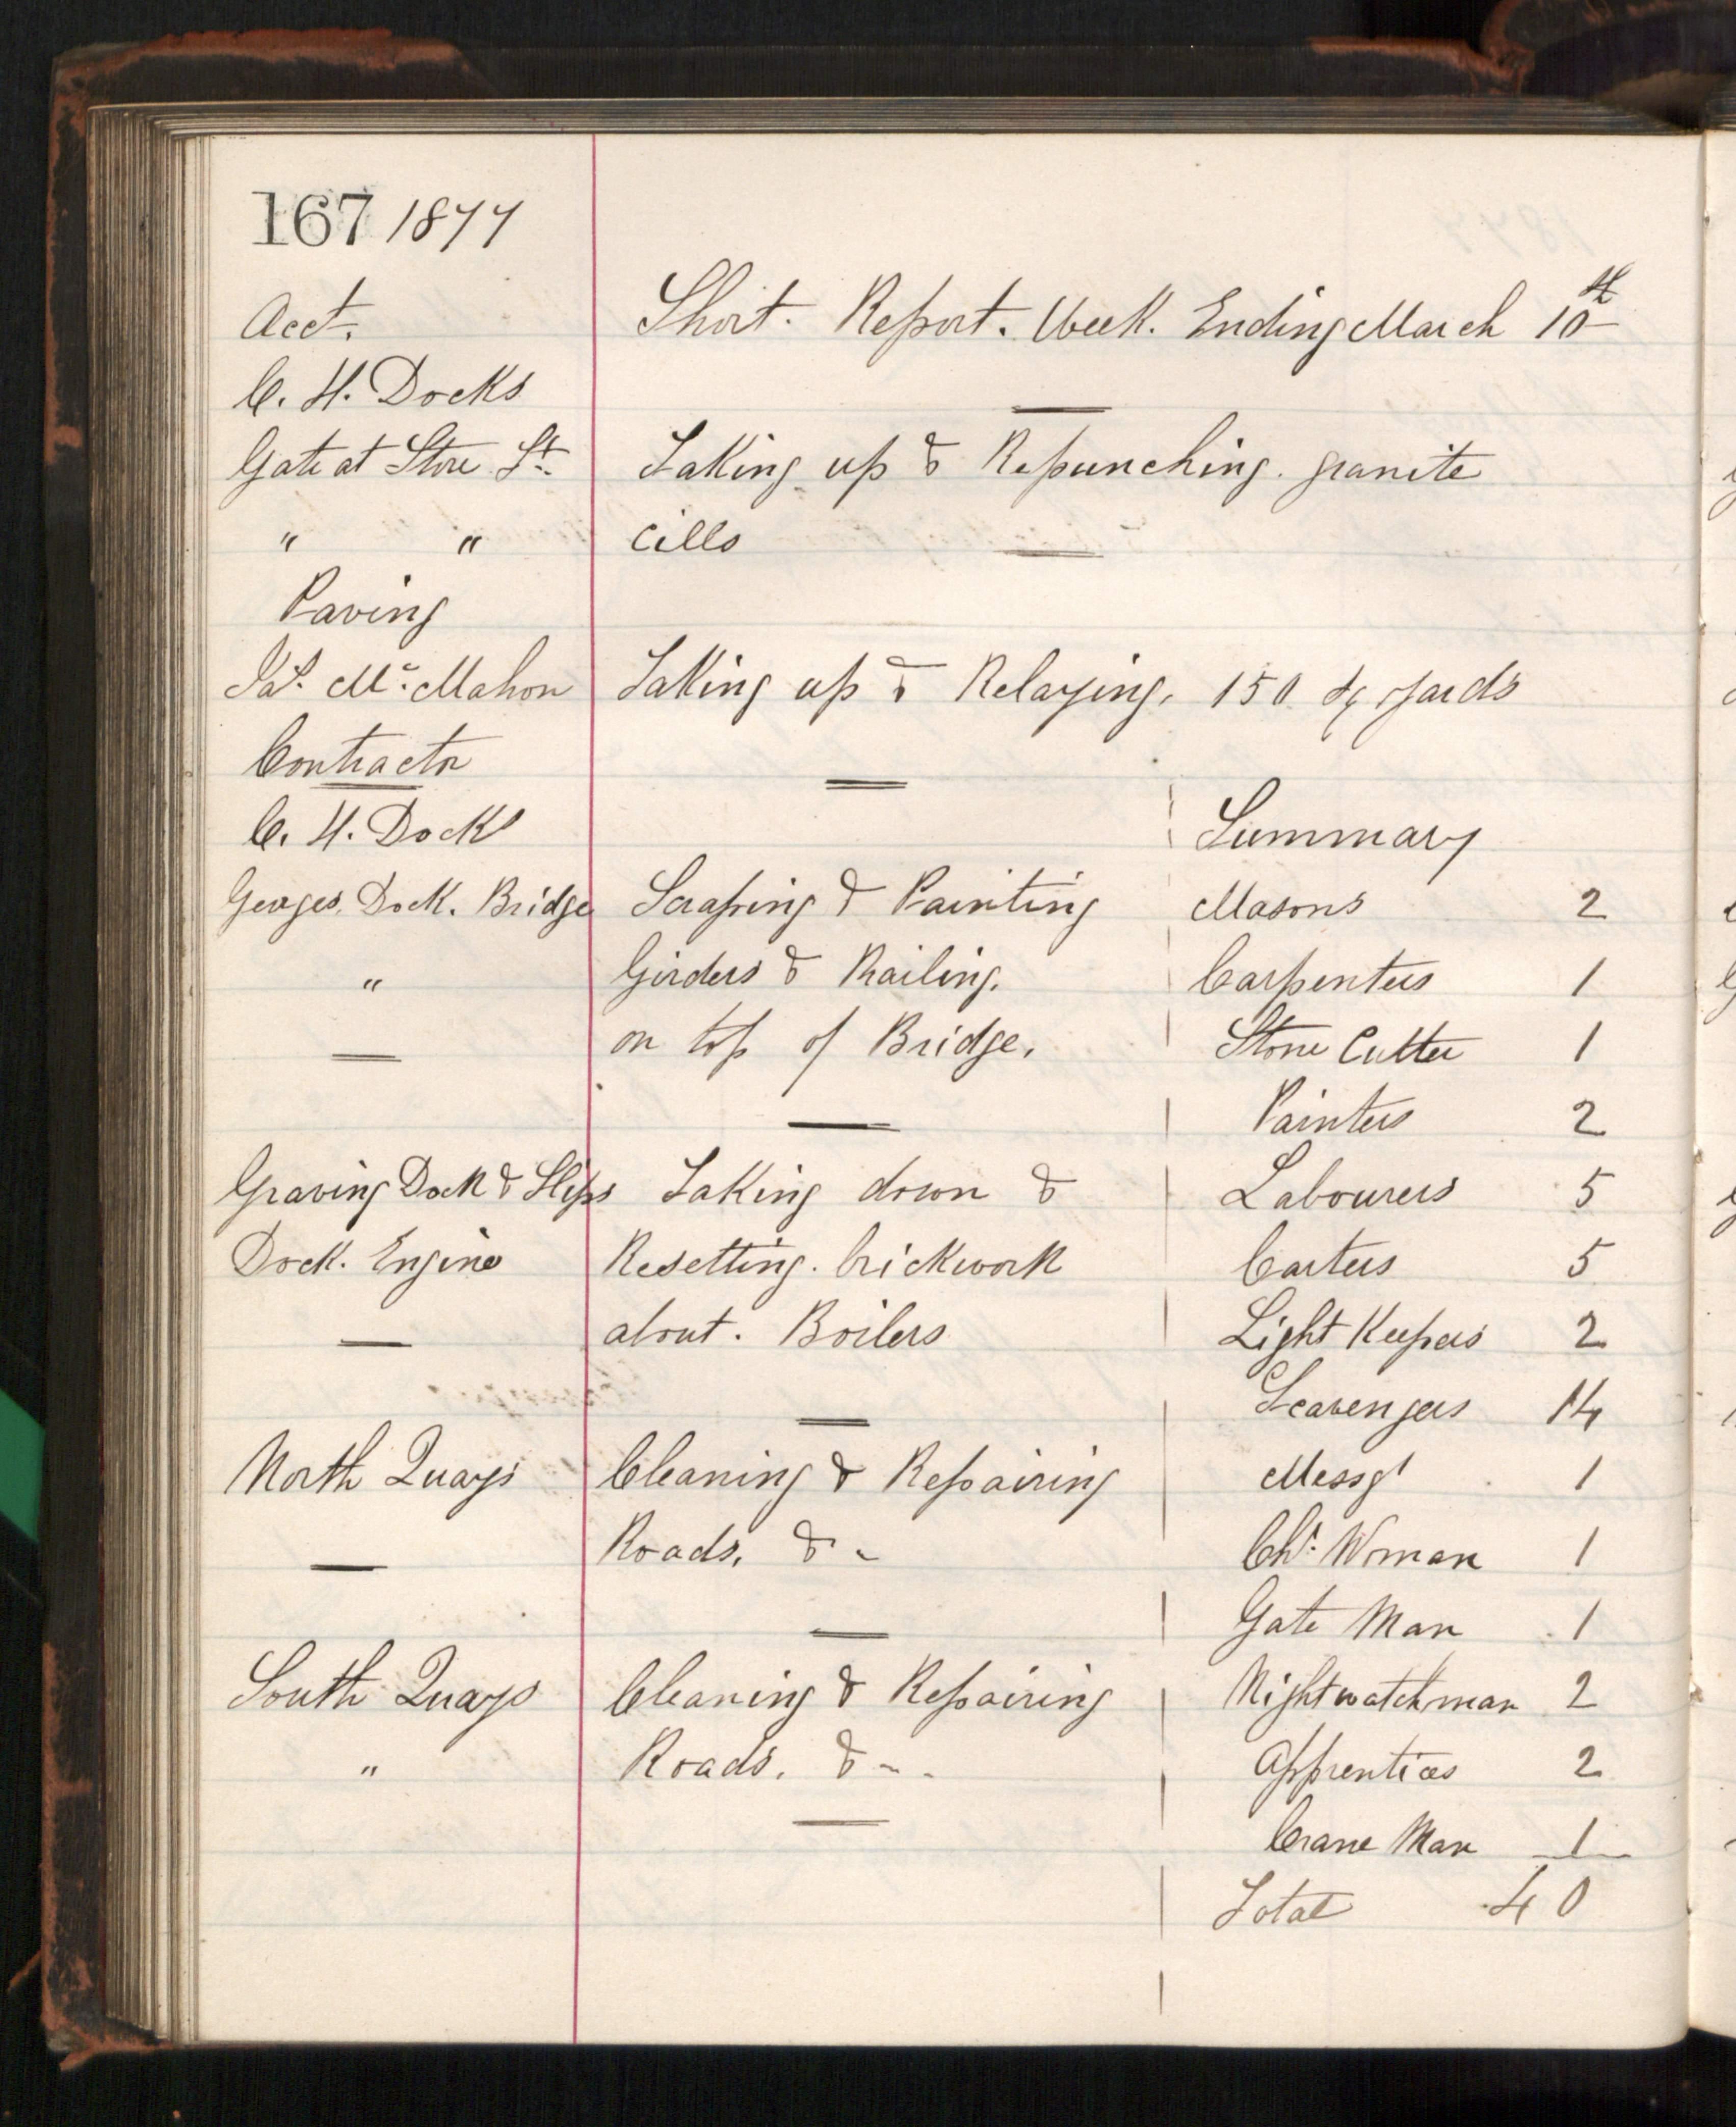 167 1877
Acct. Short. Report. Week. Ending March 10th
C. H. Docks
Gate at Store St. Taking up & Repunching. granite
" " cills
Paving
Jas. Mc. Mahon Taking up & Relaying. 150 sq yards
Contractor
C. H. Docks Summary
Georges. Dock. Bridge Scraping & Painting Masons 2
" Girders & Railing. Carpenters 1
on top of Bridge. Stone Cutter 1
Painters 2
Graving Dock & Slips Taking down & Labourers 5
Dock. Engine Resetting. brickwork Carters 5
about. Boilers Light Keepers 2
Scavengers 14
North Quays Cleaning & Repairing Messgr 1
Roads. & - Chr. Woman 1
Gate Man 1
South Quays Cleaning & Repairing Nightwatchman 2
" Roads. & - - Apprentices 2
Crane Man 1
Total 40